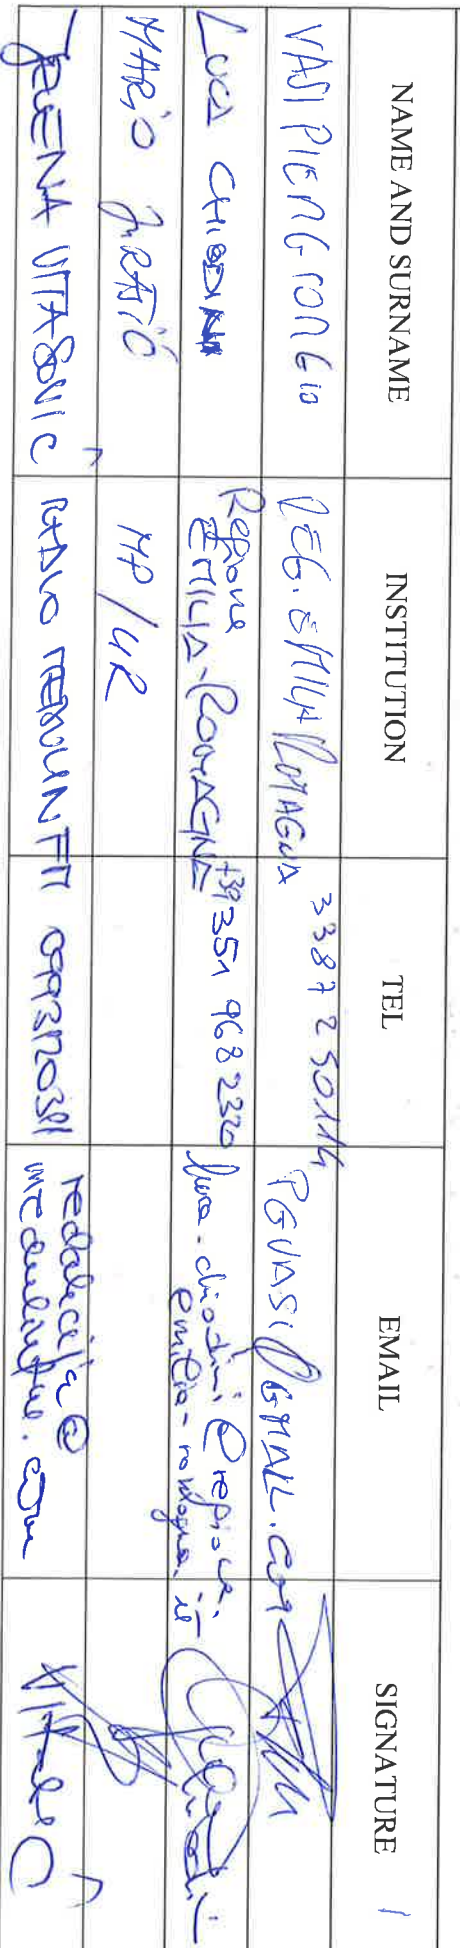 NAME AND SURNAME INSTITUTION TEL EMAIL SIGNATURE
VASI PIERGIORGIO REG. EMILIA ROMAGNA 3387250114 PGVASI@GMAIL.COM
LUCA CHIODINI Regione EMILIA-ROMAGNA +39 351 9682320 luca.chiodini@regione.emilia-romagna.it
MARIO BRATIĆ MP/UR
JELENA VITASOVIĆ RADIO MEDULIN FM redakcija@medulinfm.com